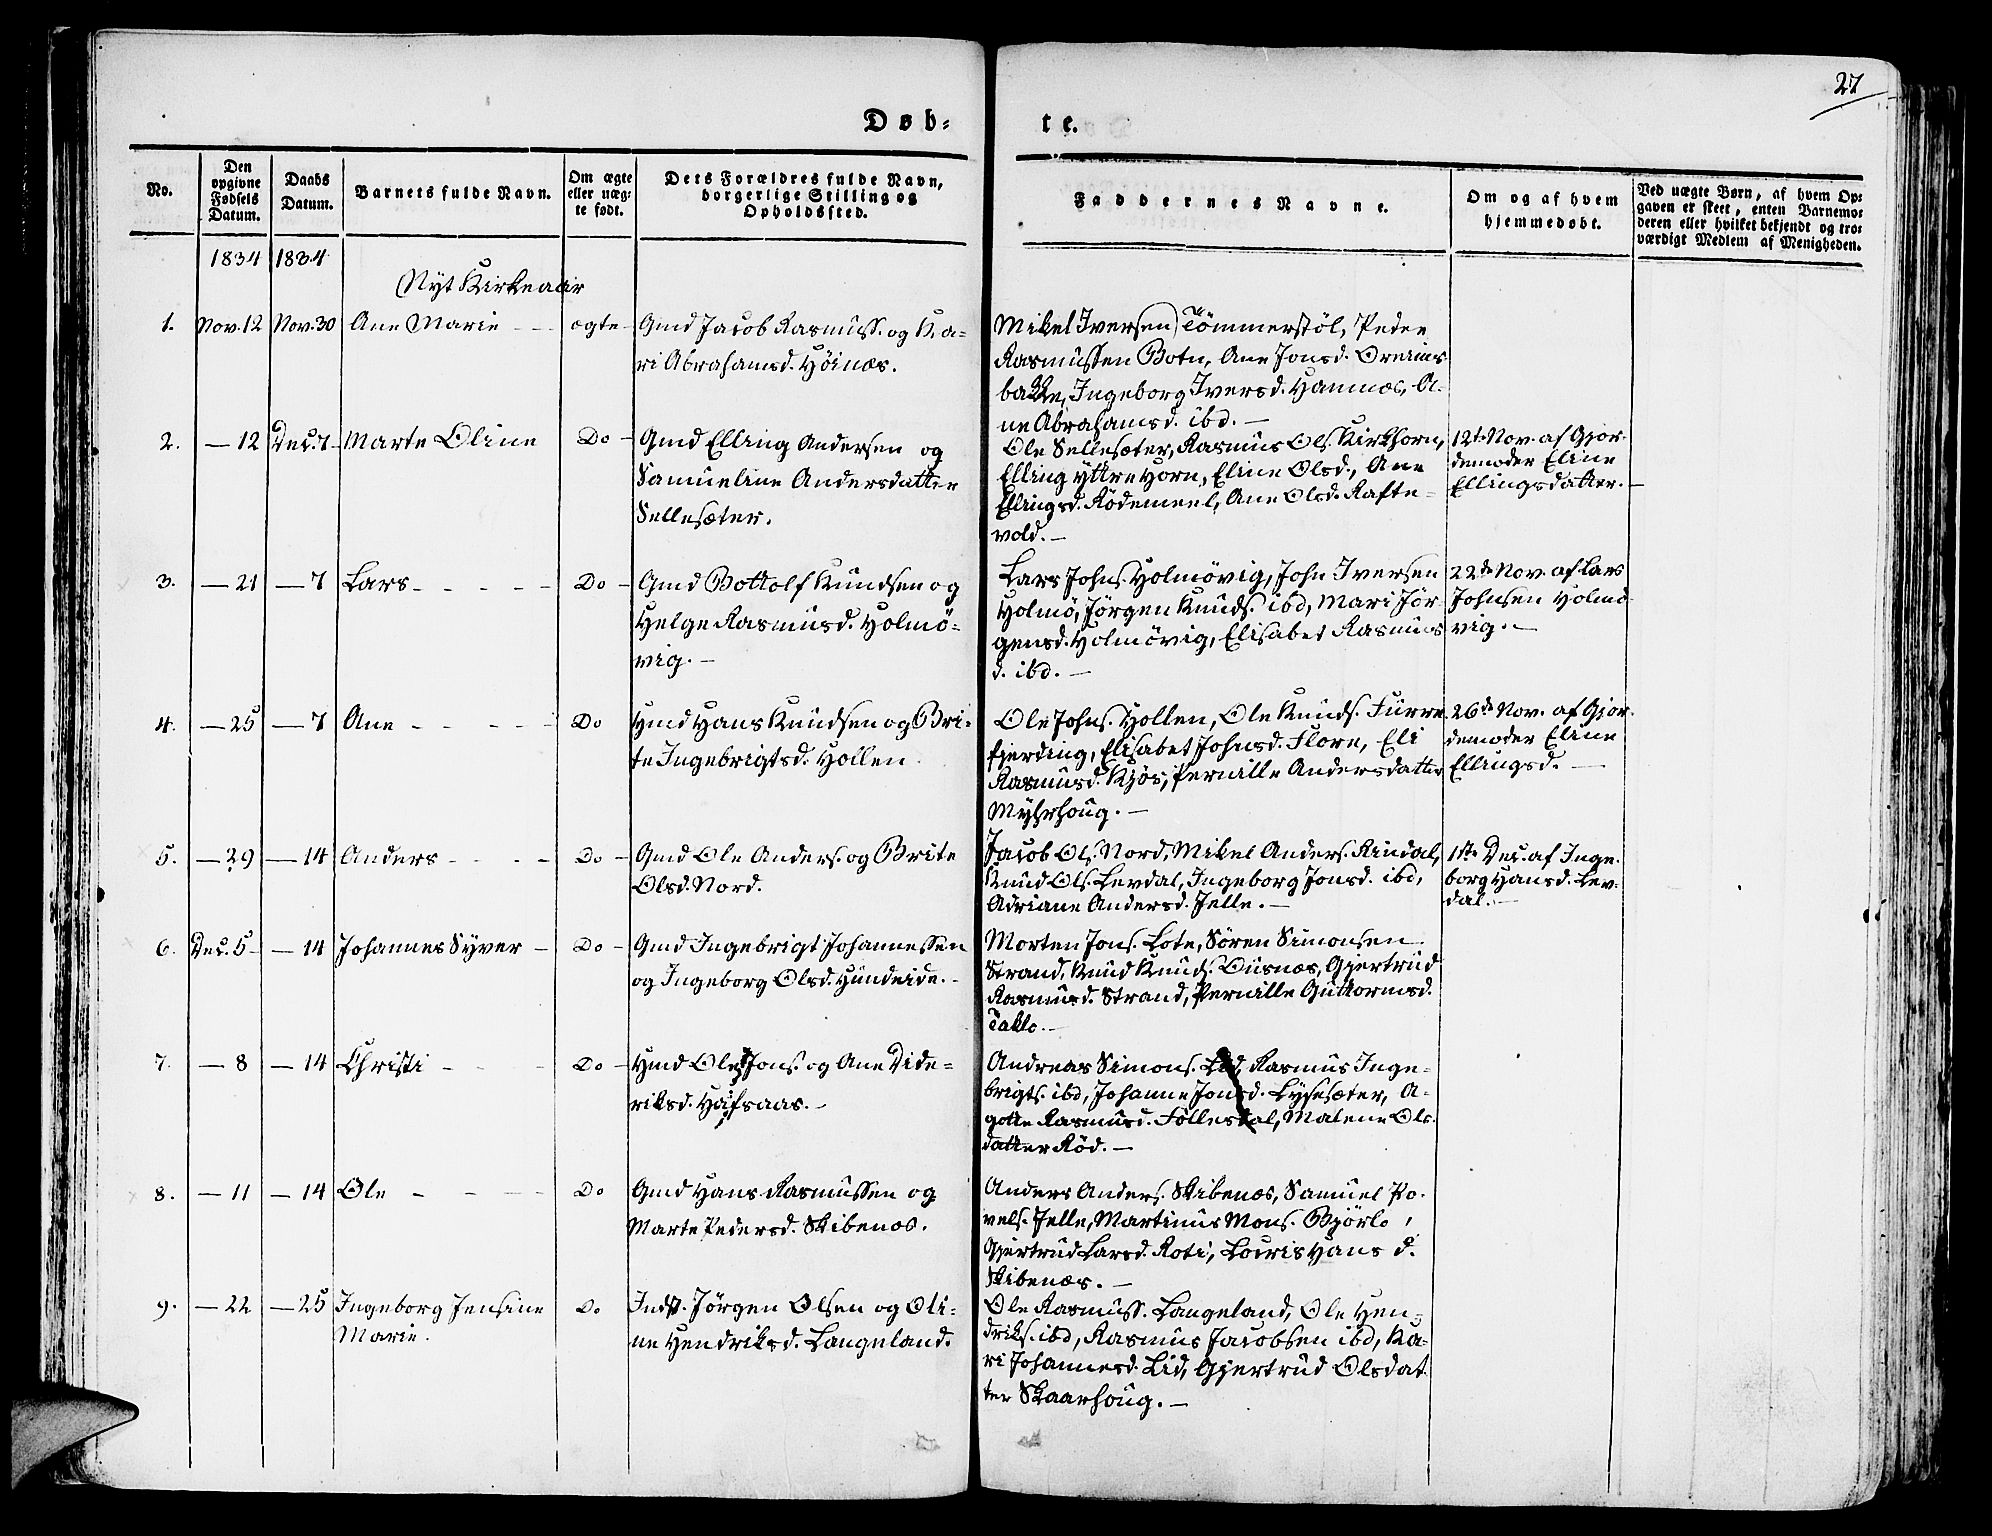 27
Døb-
te.
No.
Den opgivne Fødsels Datum.
Daabs Datum.
Barnets fulde Navn.
Om ægte eller uægte født.
Dets Forældres fulde Navn, borgerlige Stilling og Opholdssted.
Faddernes Navne.
Om og af hvem hjemmedøbt.
Ved uægte Børn, af hvem Opgaven er skeet, enten Barnemoderen eller hvilket bekjendt og troværdigt Medlem af Menigheden.
1834 1834
Nyt Kirkeaar
1. Nov. 12 Nov. 30 Ane Marie - - ægte - Gmd Jacob Rasmuss. og Ka-
ri Abrahamsd. Höinæs.
Mikel Iversen Tömmerstöl, Peder
Rasmussen Botn, Ane Jonsd.
bakke, Ingeborg Iversd. Hamnæs, A-
ne Abrahamsd. ibd. —
2. — 12 Dec. 7 - Marte Oline Do - Gmd Elling Andersen og
Samueline Andersdatter
Sellesæter.
Ole Sellesæter, Rasmus Ols. Kirkhorn,
Elling yttre Horn, Eline Olsd., Ane
Ellingsd. Rödemeel, Ane Olsd. Rafte-
vold. —
12te Nov. af Gjor-
demoder Eline
Ellingsdatter. —
3. — 21 — 7 Lars - - - - - Do - Gmd Bottolf Knudsen og
Helge Rasmusd. Holmö-
vig. —
Lars Johns. Holmövig, John Iversen
Holmö, Jörgen Knuds. ibd, Mari Jör-
gensd. Holmövig, Elisabet Rasmus
d. ibd. —
22de Nov. af Lars
Johnsen Holmö-
vig. —
4. — 25 — 7 Ane - - - - - Do Hmd Hans Knudsen og Bri-
te Ingebrigtsd. Hollen.
Ole Johns. Hollen, Ole Knuds. Furre
fjerding, Elisabet Johnsd. Florn, Eli
Rasmusd. Kjös, Pernille Andersdatter
Myhrhoug. —
26de Nov. af Gjor-
demoder Eline
Ellingsd. —
5. — 29 — 14 Anders - - - - Do - Gmd Ole Anders. og Brite
Olsd. Nord.
Jacob Ols. Nord, Mikel Anders. Rindal,
Knud Ols. Levdal, Ingeborg Jonsd. ibd,
Adriane Andersd. Jelle. —
1ste Dec. af Inge-
borg Hansd. Lev-
dal. —
6. Dec. 5 - — 14 Johannes Syver - Do - Gmd Ingebrigt Johannessen
og Ingeborg Olsd. Hundeide. -
Morten Jons. Lote, Sören Simonsen
Strand, Knud Knuds. Gjertrud
Rasmusd. Strand, Pernille Guttormsd.
Taklo. —
7. — 8 — 14 Christi - - - Do - Hmd Ole Jons. og Ane Dide-
riksd. Hafsaas. -
Andreas Simons. Lid, Rasmus Inge-
brigts. ibd, Johanne Jonsd. Lysesæter, A-
gotte Rasmusd. Föllesdal, Malene Ols-
datter Röd. —
8. — 11 — 14 Ole - - - - Do Gmd Hans Rasmussen og
Marte Pedersd. Skibenæs.
Anders Anders. Skibenæs, Samuel Po-
vels. Jelle, Martinus Mons. Bjorlo,
Gjertrud Larsd. Roti, Lovris Hans d.
Skibenæs. —
9. — 22 — 25 Ingeborg Jensine
Marie.
Do Inds. Jörgen Olsen og Oli-
ne Hendriksd. Langeland.
Ole Rasmuss. Langeland, Ole Hen-
driks. ibd, Rasmus Jacobsen ibd, Ka-
ri Johannesd. Lid, Gjertrud Olsdat
ter Skaarhoug. —